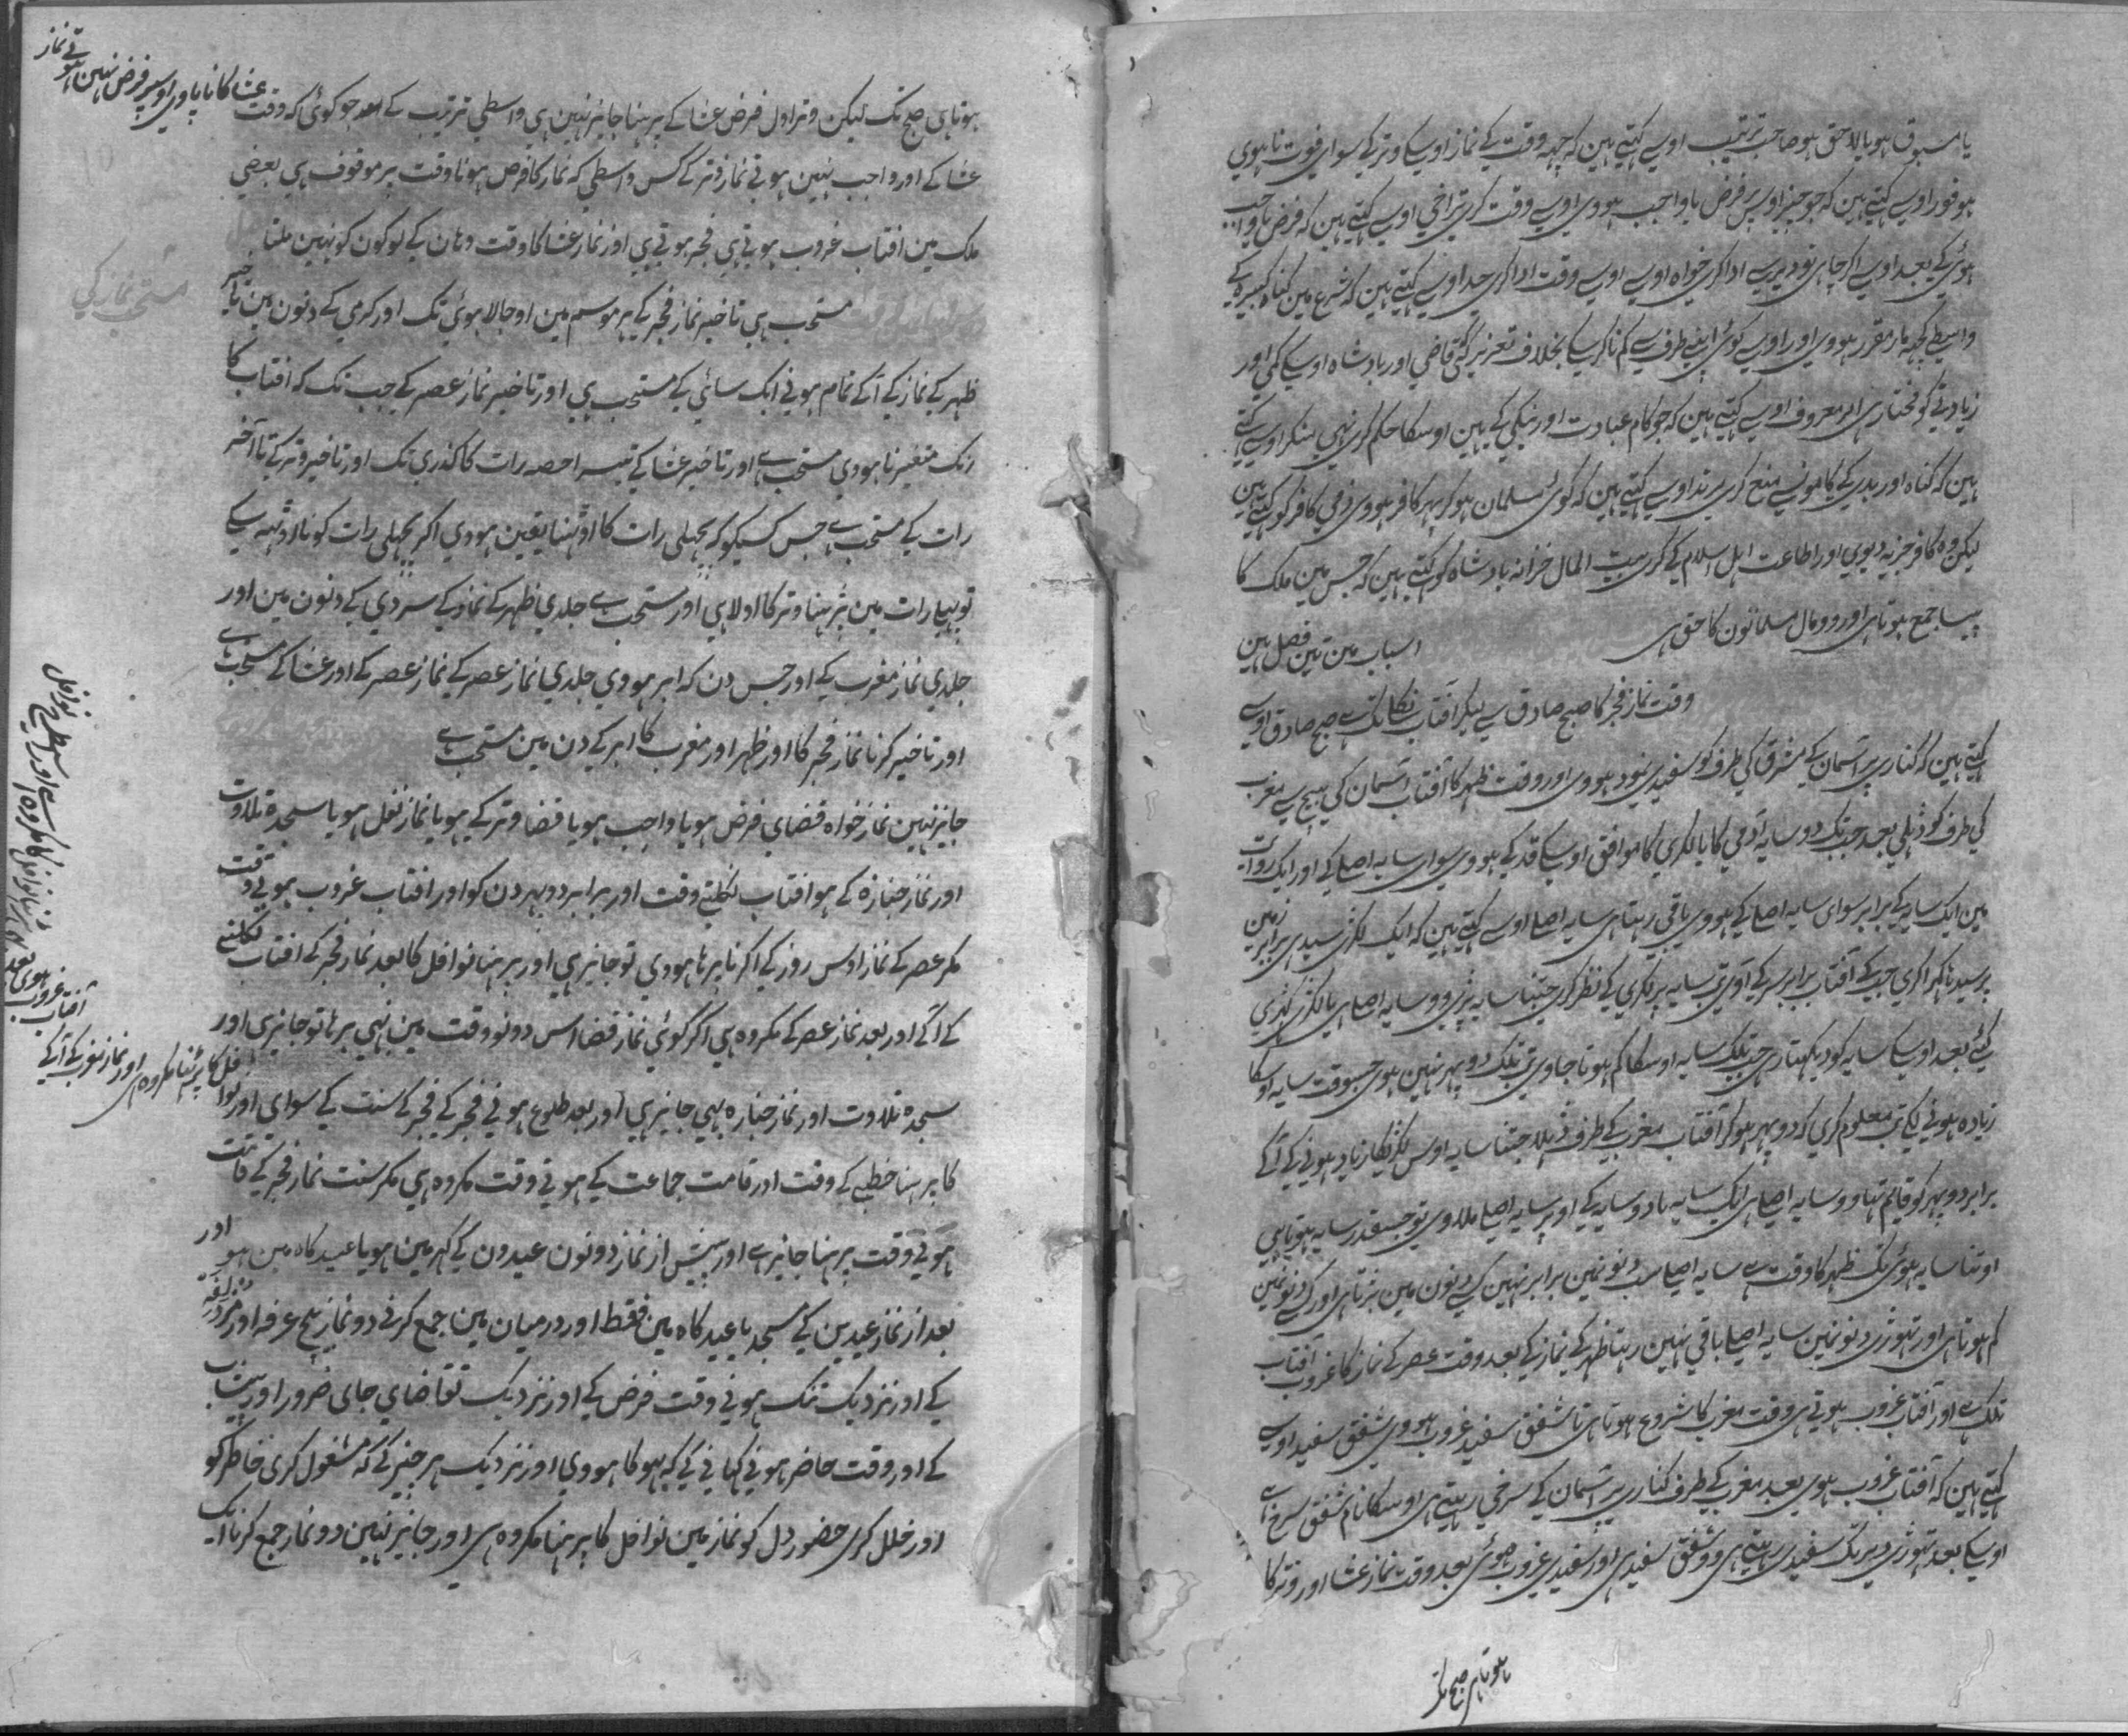 یا مسبوق ہو یا لاحق ہو صاحب ترتیب اوسے کہتے ہین کہ چہہ وقت کے نماز اوسکے وتر کے سوای فوت نا ہوی
ہو فور اوسے کہتے ہین کہ جو چیز اوسپر فرض یا واجب ہووی اوسے وقت کری تراخی اوسے کہتے ہین کہ فرض یا واجب
ہوئی کے بعد اوسے اکر چاہی تو دیر سے ادا کری خواہ اوسے اوسے وقت ادا کری حد اوسے کہتے ہین کہ شرع مین کناہ کبیرہ کے
واسطے کچہہ مار مقرر ہووی اور اوسے کوئی اپنے طرف سے کم نا کر سکے بخلاف تعزیر کے قاضی اور بادشاہ اوسکے کمی اور
زیادتی کو مختار ہی امر معروف اوسے کہتے ہین کہ جو کام عبادت اور نیکی کے ہین اوسکا حکم کری نہی منکر اوسے کہتے
ہین کہ کناہ اور بدی کے کامونسے منع کری مرتد اوسے کہتے ہین کہ کوی مسلمان ہو کر پہر کافر ہووی ذمی کافر کو کہتے ہین
لیکن وہ کافر جزیہ دیوی اور اطاعت اہل اسلام کے کری بیت المال خزانہ بادشاہ کو کہتے ہین کہ جس مین ملک کا
پیسا جمع ہوتا ہی اور وو مال مسلمانون کا حق ہی اسباب مین تین فصل ہین
وقت نماز فجر کا صبح صادق سے لیکر آفتاب نکلنے تک ہے صبح صادق اوسے
کہتے ہین کہ کناری پر آسمان کے مشرق کی طرف کو سفیدی نمود ہووی اور وقت ظہر کا آفتاب آسمان کی بیچ سے مغرب
کی طرف کو ڈہلی بعد جب تک دو سایہ آدمی کا یا لکری کا موافق اوسکے قد کے ہووی سوای سایہ اصلے کے اور ایک روایت
مین ایک سایہ کے برابر سوای سایہ اصلے کے ہووی باقی رہتا ہی سایہ اصلے اوسے کہتے ہین کہ ایک لکڑی سیدی برابر زمین
پر سیدہا کہڑا کری جب کے آفتاب برابر سر کے آوی تب سایہ پر لکڑی کے نظر کری جتنا سایہ پڑی وو سایہ اصلے ہی یا لکڑی کہڑی
کئے بعد اوسکے سایہ کو دیکہتا رہی جب تلک سایہ اوسکا کم ہوتا جاوی تب تلک دوپہر نہین ہوی جسوقت سایہ اوسکا
زیادہ ہونے لکے تب معلوم کری کہ دوپہر ہو کر آفتاب مغرب کے طرف ڈہلا جتنا سایہ اوس لکڑیکا زیاد ہونے کے آکے
برابر دوپہر کو قایم تہا وو سایہ اصلے ہی ایک سایہ یا دو سایہ کے اوپر سایہ اصلے ملاوی تو جسقدر سایہ ہوتا ہی
اوتنا سایہ ہوئی تک ظہر کا وقت ہے سایہ اصلے سب دنونمین برابر نہین کسے دنون مین بڑتا ہی اور کسے دنونمین
کم ہوتا ہی اور تہوڑی دنونمین سایہ اصلے باقی نہین رہتا ظہر کے نماز کے بعد وقت عصر کے نماز کا غروب آفتاب
تلک ہے اور آفتاب غروب ہوتے ہی وقت مغرب کا شروع ہوتا ہی تا شفق سفید غروب ہووی شفق سفید اوسے
کہتے ہین کہ آفتاب غروب ہوی بعد مغرب کے طرف کناری پر آسمان کے سرخی رہتی ہی اوسکا نام شفق سرخ ہے
اوسکے بعد تہوڑی دیر تک سفیدی رہتی ہی وو شفق سفید ہی اور سفیدی غروب ہوئی بعد وقت نماز عشا اور وتر کا
ہوتا ہی صبح تک
ہوتا ہی صبح تک لیکن وتر اول فرض عشا کے پرہنا جایز نہین ہی واسطی ترتیب کے اور جو کوئی کہ وقت
عشا کا نا پاوی اوسپر فرض نہین ہوتے نماز
عشا کے اور واجب نہین ہوتے نماز وتر کے کس واسطی کہ نماز کا فرض ہونا وقت پر موقوف ہی بعضی
ملک مین افتاب غروب ہوتے ہی فجر ہوتے ہی اور نماز عشا کا وقت وہان کے لوکون کو نہین ملتا
مستحب نماز کی
مستحب ہی تاخیر نماز فجر کے ہر موسم مین اوجالا ہوئی تک اور کرمی کے دنون مین تاخیر
ظہر کے نماز کے آکے تمام ہونے ایک سائی کے مستحب ہی اور تاخیر نماز عصر کے جب تک کہ افتاب کا
رنک متغیر نا ہووی مستحب ہے اور تاخیر عشا کے تیسرا حصہ رات کا کذری تک اور تاخیر وتر کے تا آخر
رات کے مستحب ہے جس کسیکو کہ پچہلی رات کا اوٹہنا یقین ہووی اکر پچہلی رات کو نا اوٹہہ سکے
تو پہلے رات مین پڑہنا وتر کا اولا ہی اور مستحب ہے جلدی ظہر کے نماز کے سردی کے دنون مین اور
جلدی نماز مغرب کے اور جس دن کہ ابر ہووی جلدی نماز عصر کے نماز عصر کے اور عشا کے مستحب ہے
اور تاخیر کرنا نماز فجر کا اور ظہر اور مغرب کا ابر کے دن مین مستحب ہے
جایز نہین نماز خواہ قضای فرض ہو یا واجب ہو یا قضا وتر کے ہو یا نماز نفل ہو یا سجدہ تلاوت
اور نماز جنازہ کے ہو افتاب نکلتے وقت اور برابر دوپہر دن کو اور افتاب غروب ہوتے وقت
مکر عصر کے نماز اوس روز کے اکر نا پرہا ہووی تو جایز ہی اور پرہنا نوافل کا بعد نماز فجر کے افتاب نکلنے
کے آکے اور بعد نماز عصر کے مکروہ ہی اکر کوئی نماز قضا اس دونو وقت مین بہی پرہا تو جایز ہی اور
سجدہ تلاوت اور نماز جنازہ بہی جایز ہی اور بعد طلوع ہونے فجر کے فجر کے سنت کے سوای اور نوافل کا پڑہنا مکروہ ہی
اور نماز مغرب کے آکے
آفتاب غروب ہوی بعد
کا پرہنا خطبے کے وقت اور قامت جماعت کے ہوتے وقت مکروہ ہی مکر سنت نماز فجر کے قامت
ہوتے وقت پرہنا جایز ہے اور پیش از نماز دونون عیدون کے کہر مین ہو یا عید کاہ مین ہو اور
بعد از نماز عیدین کے مسجد یا عید کاہ مین فقط اور درمیان مین جمع کرنے دو نماز بیچ عرفہ اور مزدلفہ
کے اور نزدیک تنک ہونے وقت فرض کے اور نزدیک تقاضای جای ضرور اور پیشاب
کے اور وقت حاضر ہونے کہانے کے کہ بہوکا ہووی اور نزدیک ہر چیز کے کہ مشغول کری خاطر کو
اور خلل کری حضور دل کو نماز مین نوافل کا پرہنا مکروہ ہی اور جایز نہین دو نماز جمع کرنا ایک